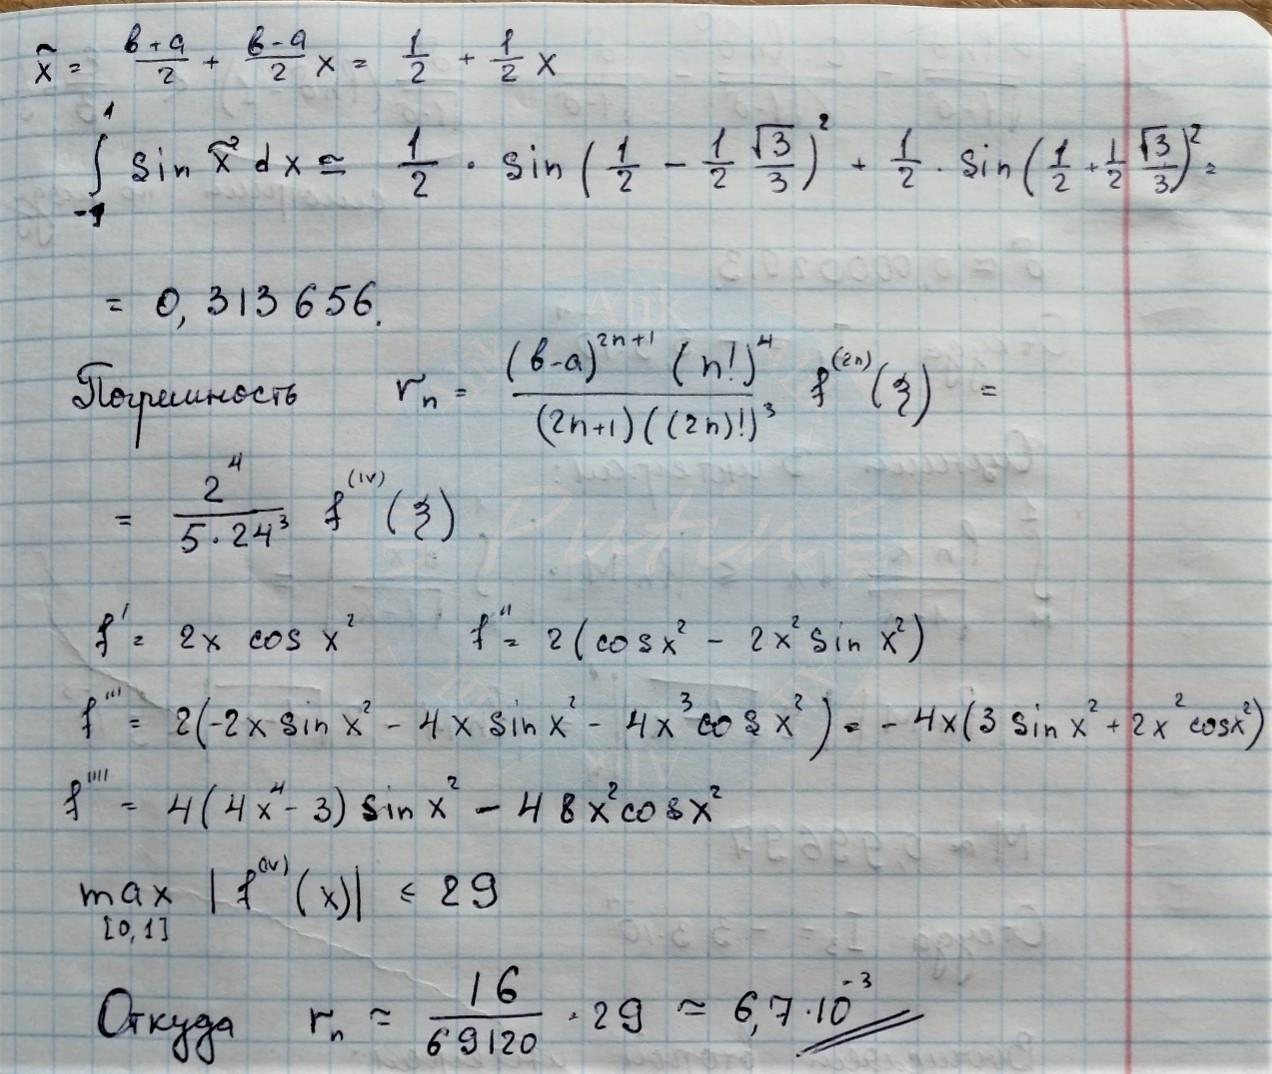 x̃ = (b+a)/2 + (b-a)/2 x = 1/2 + 1/2 x
∫₋₁¹ sin x̃² dx ≃ 1/2 · sin(1/2 - 1/2 √3/3)² + 1/2 · sin(1/2 + 1/2 √3/3)² =
= 0,313656.
Погрешность rₙ = (b-a)²ⁿ⁺¹ (n!)⁴ / (2n+1)((2n)!)³ f⁽²ⁿ⁾(ξ) =
= 2⁴ / 5·24³ f⁽ᴵⱽ⁾(ξ)
f' = 2x cos x² f'' = 2(cos x² - 2x² sin x²)
f''' = 2(-2x sin x² - 4x sin x² - 4x³ cos x²) = -4x(3 sin x² + 2x² cos x²)
f'''' = 4(4x⁴ - 3) sin x² - 48x² cos x²
max |f⁽ᴵⱽ⁾(x)| < 29
[0,1]
Откуда rₙ ≃ 16/69120 · 29 ≃ 6,7·10⁻³